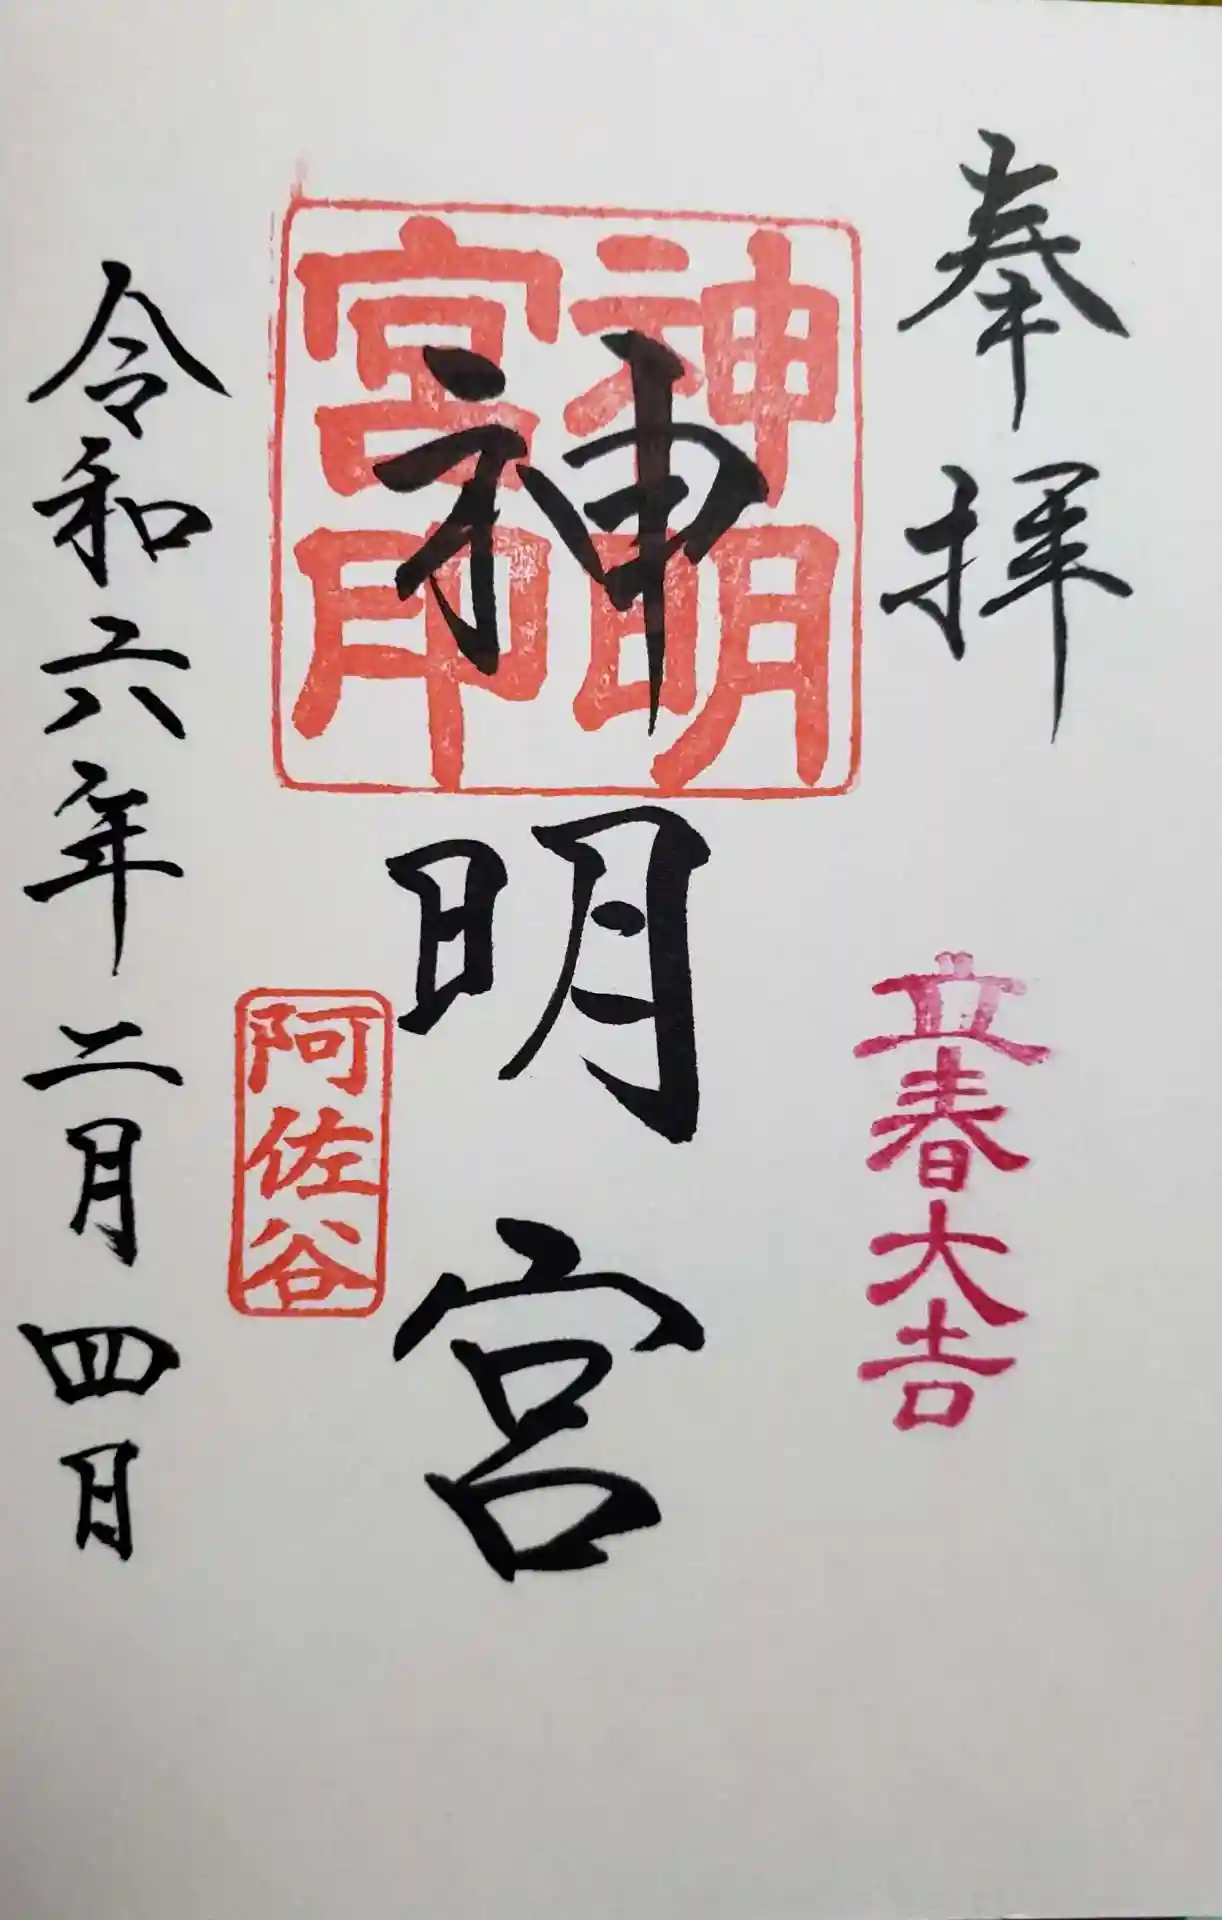 奉拝
立春大吉
神明宮
神明
宮印
阿佐谷
令和六年二月四日